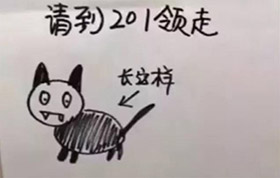 请到201领走
长这样